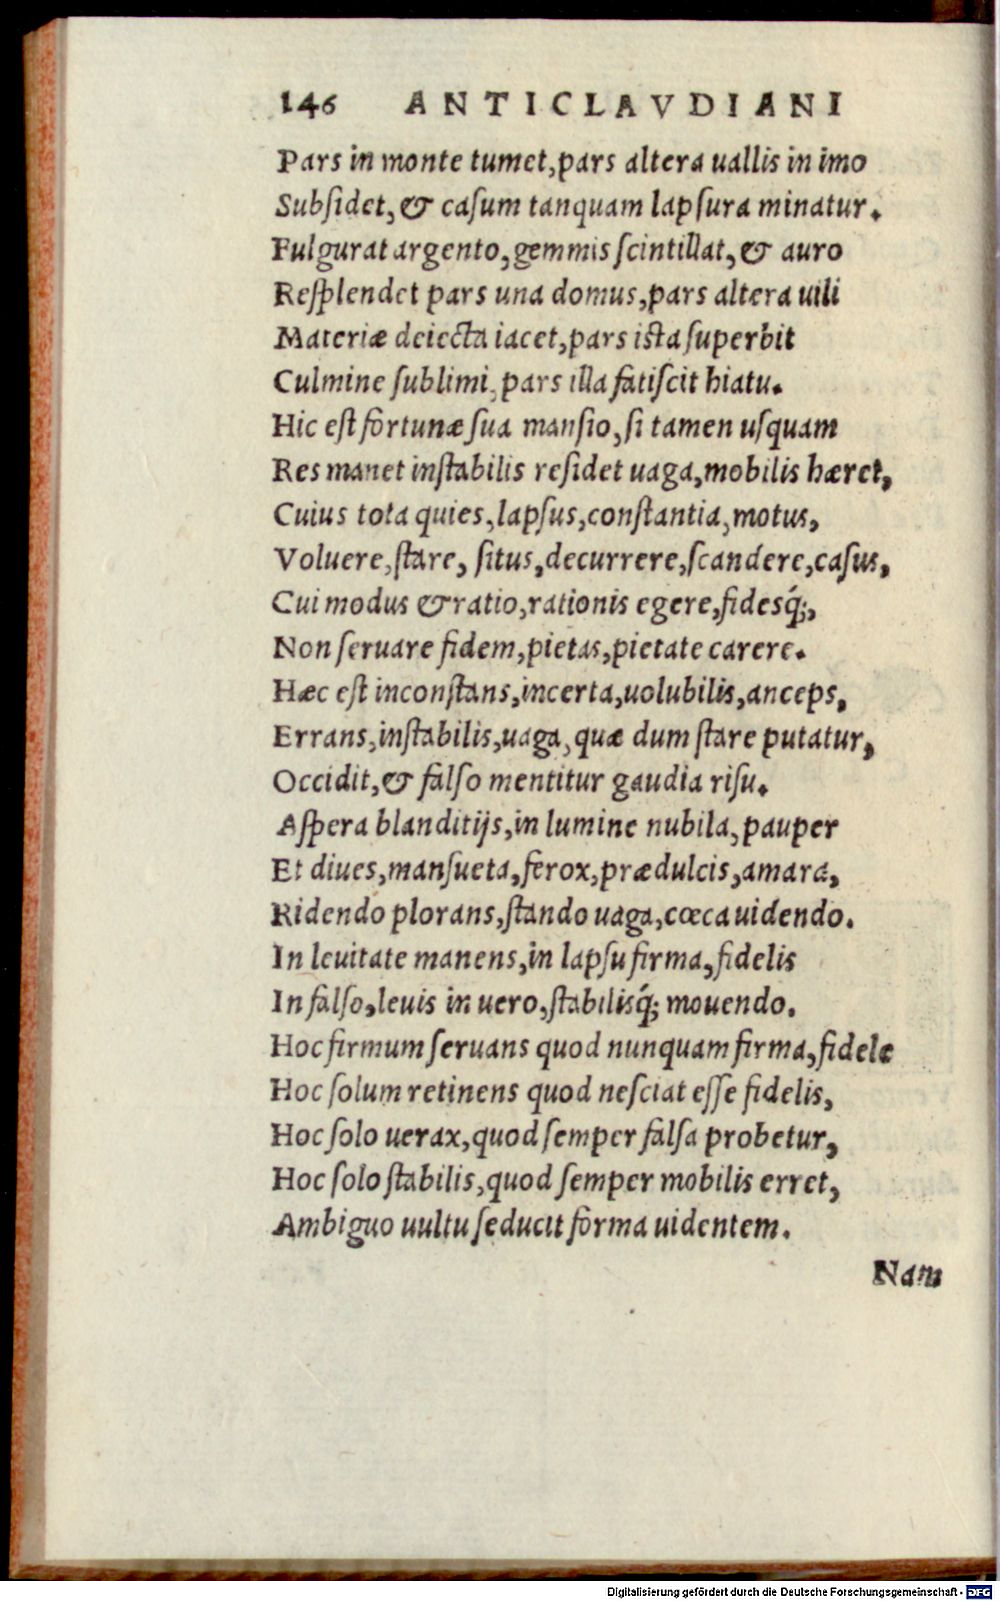 146 ANTICLAVDIANI
Pars in monte tumet, pars altera uallis in imo
Subſidet, & caſum tanquam lapſura minatur.
Fulgurat argento, gemmis ſcintillat, & auro
Reſplendet pars una domus, pars altera uili
Materiæ deiecta iacet, pars iſta ſuperbit
Culmine ſublimi, pars illa fatiſcit hiatu.
Hic eſt fortunæ ſua manſio, ſi tamen uſquam
Res manet inſtabilis reſidet uaga, mobilis hæret,
Cuius tota quies, lapſus, conſtantia, motus,
Voluere, ſtare, ſitus, decurrere, ſcandere, caſus,
Cui modus & ratio, rationis egere, fidesq́;,
Non ſeruare fidem, pietas, pietate carere.
Hæc eſt inconſtans, incerta, uolubilis, anceps,
Errans, inſtabilis, uaga, quæ dum ſtare putatur,
Occidit, & falſo mentitur gaudia riſu.
Aſpera blanditijs, in lumine nubila, pauper
Et diues, manſueta, ferox, prædulcis, amara,
Ridendo plorans, ſtando uaga, cœca uidendo.
In leuitate manens, in lapſu firma, fidelis
In falſo, leuis in uero, ſtabilisq́; mouendo.
Hoc firmum ſeruans quod nunquam firma, fidele
Hoc ſolum retinens quod neſciat eſſe fidelis,
Hoc ſolo uerax, quod ſemper falſa probetur,
Hoc ſolo ſtabilis, quod ſemper mobilis erret,
Ambiguo uultu ſeducit forma uidentem.
Nam
Digitalisierung gefördert durch die Deutsche Forschungsgemeinschaft - DFG